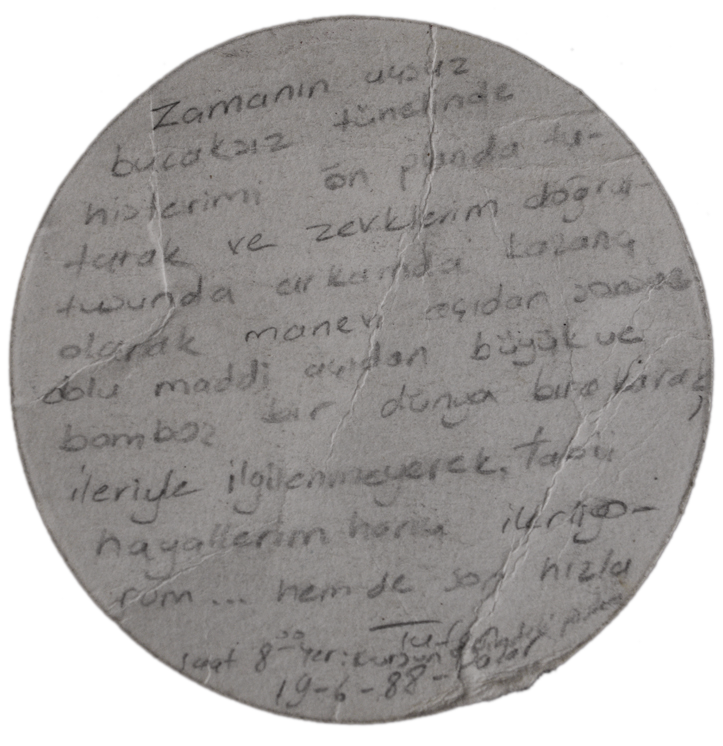 Zamanın uçsuz
bucaksız tünelinde
hislerimi ön planda tu-
tarak ve zevklerim doğrul-
tusunda arkamda kazanç
olarak manevi açıdan sonsuz
dolu maddi açıdan büyük ve
bomboz bir dünya bırakarak,
ileriyle ilgilenmeyerek. Tabii
hayallerim hariç ilerliyo-
rum... hem de son hızla
saat 8³⁰ Yer:
19-6-88-Pazar